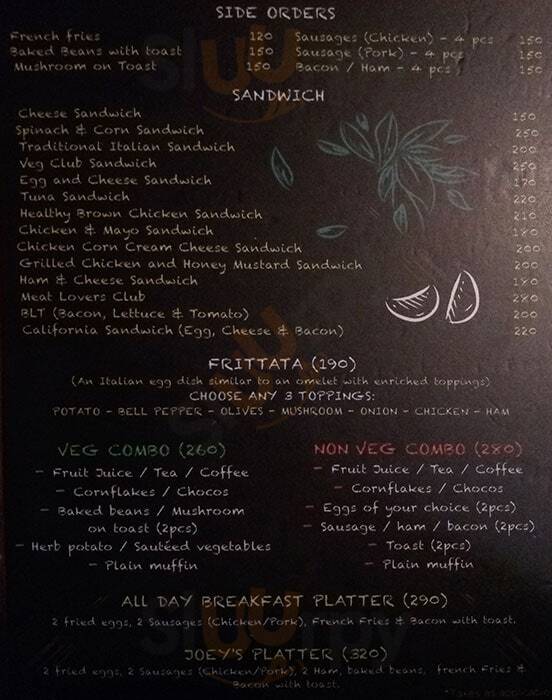 SIDE ORDERS
French fries 120 Sausages (Chicken) - 4 pcs 150
Baked Beans with toast 150 Sausage (Pork) - 4 pcs 150
Mushroom on Toast 150 Bacon / Ham - 4 pcs 150
SANDWICH
Cheese Sandwich 150
Spinach & Corn Sandwich 250
Traditional Italian Sandwich 200
Veg Club Sandwich 250
Egg and Cheese Sandwich 170
Tuna Sandwich 220
Healthy Brown Chicken Sandwich 210
Chicken & Mayo Sandwich 180
Chicken Corn Cream Cheese Sandwich 200
Grilled Chicken and Honey Mustard Sandwich 200
Ham & Cheese Sandwich 180
Meat Lovers Club 280
BLT (Bacon, Lettuce & Tomato) 200
California Sandwich (Egg, Cheese & Bacon) 220
FRITTATA (190)
(An Italian egg dish similar to an omelet with enriched toppings)
CHOOSE ANY 3 TOPPINGS:
POTATO - BELL PEPPER - OLIVES - MUSHROOM - ONION - CHICKEN - HAM
VEG COMBO (260)
- Fruit Juice / Tea / Coffee
- Cornflakes / Chocos
- Baked beans / Mushroom
on toast (2pcs)
- Herb potato / Sautéed vegetables
- Plain muffin
NON VEG COMBO (280)
- Fruit Juice / Tea / Coffee
- Cornflakes / Chocos
- Eggs of your choice (2pcs)
- Sausage / ham / bacon (2pcs)
- Toast (2pcs)
- Plain muffin
ALL DAY BREAKFAST PLATTER (290)
2 fried eggs, 2 Sausages (Chicken/Pork), French Fries & Bacon with toast.
JOEY'S PLATTER (320)
2 fried eggs, 2 Sausages (Chicken/Pork), 2 Ham, baked beans, french Fries &
Bacon with toast.